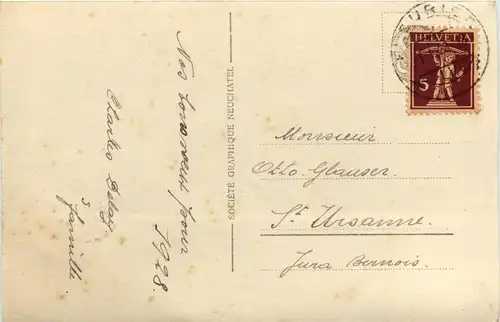 Nos bons vœux pour
1928
Charles
&
famille
SOCIÉTÉ GRAPHIQUE NEUCHATEL
HELVETIA
5
Monsieur
Otto Glauser
St Ursanne
Jura Bernois.